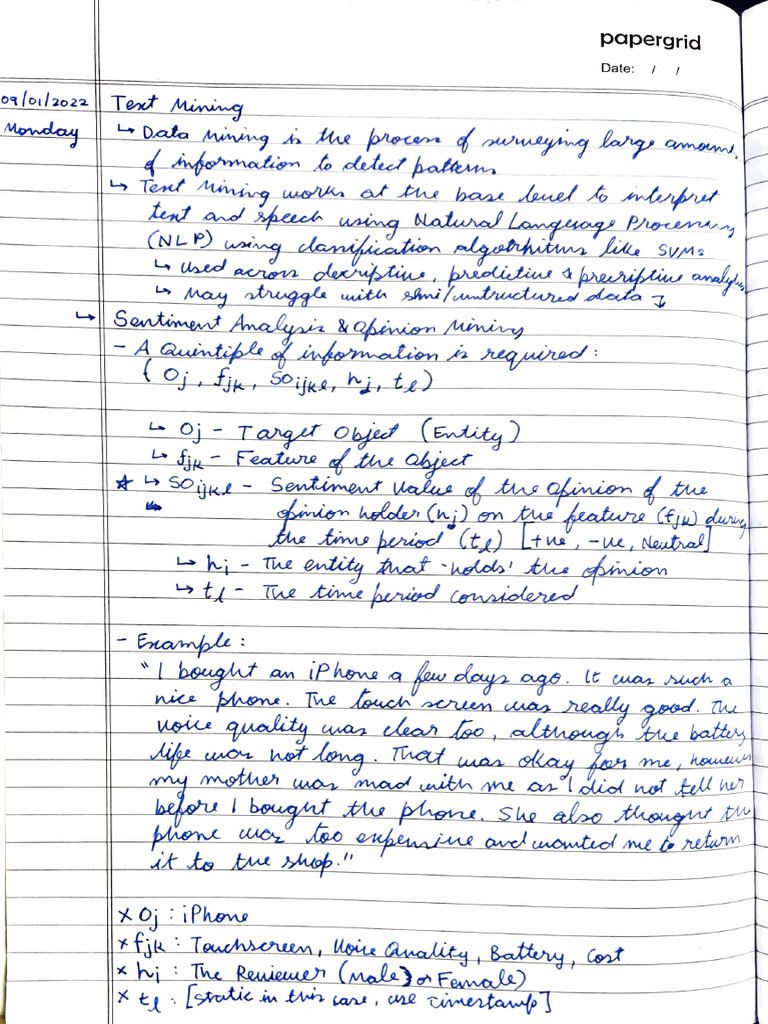 papergrid
Date: / /
09/01/2022 Text Mining
Monday ↳ Data Mining is the process of surveying large amount
of information to detect patterns
↳ Text Mining works at the base level to interpret
text and speech using Natural Language Processing
(NLP) using classification algorithms like SVMs
↳ used across descriptive, predictive & prescriptive analytics
↳ may struggle with semi/unstructured data
↳ Sentiment Analysis & Opinion Mining
- A Quintiple of information is required:
(Oj, fjk, SOijkl, hj, tl)
↳ Oj - Target Object (Entity)
↳ fjk - Feature of the Object
* ↳ SOijkl - Sentiment Value of the opinion of the
opinion holder (hj) on the feature (fjk) during
the time period (tl) [+ve, -ve, Neutral]
↳ hi - The entity that 'holds' the opinion
↳ tl - The time period considered
- Example:
"I bought an iPhone a few days ago. It was such a
nice phone. The touch screen was really good. The
voice quality was clear too, although the battery
life was not long. That was okay for me, however
my mother was mad with me as I did not tell her
before I bought the phone. She also thought the
phone was too expensive and wanted me to return
it to the shop."
x Oj : iPhone
x fjk : Touchscreen, Voice Quality, Battery, Cost
x hi : The Reviewer (Male) or Female)
x tl : [static in this case, use Timestamp]